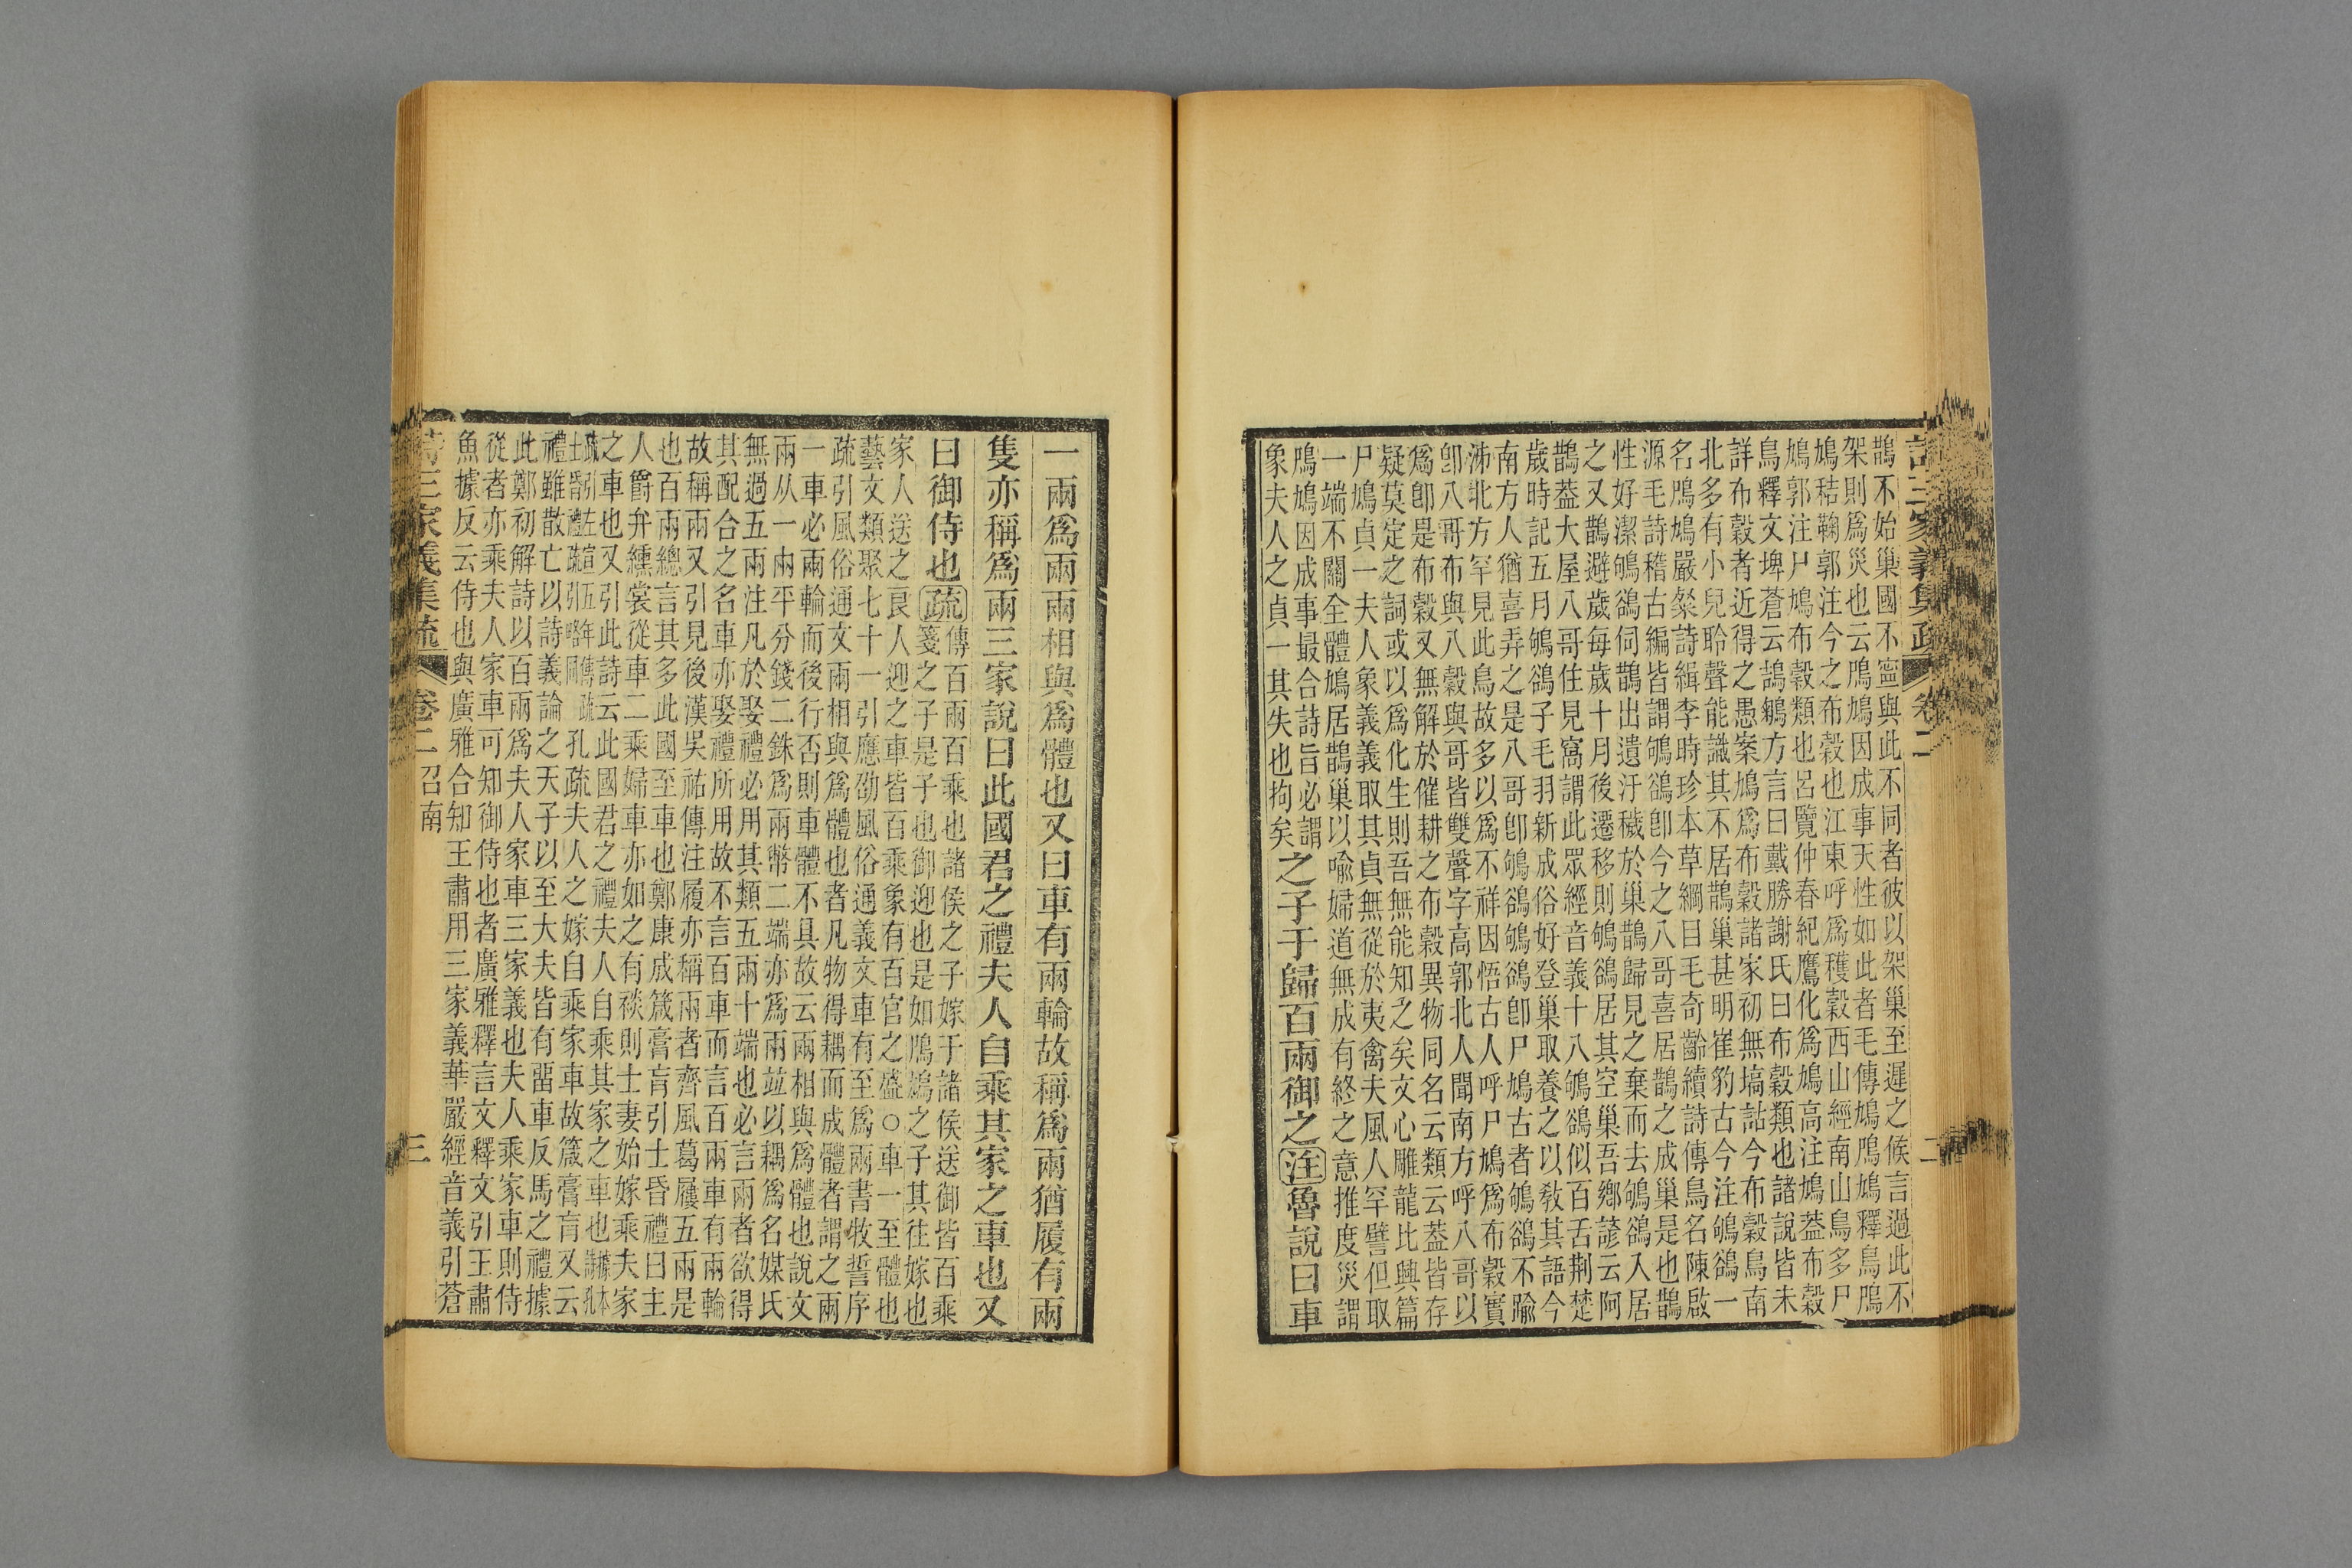 詩三家義集疏 卷二 二
鵲不始巢國不寍與此不同者彼以架巢至遲之候言過此不
架則爲災也云鳲鳩因成事天性如此者毛傳鳩鳲鳩釋鳥鳲
鳩秸鞠郭注今之布穀也江東呼爲穫穀西山經南山鳥多尸
鳩郭注尸鳩布穀類也呂覽仲春紀鷹化爲鳩高注鳩蓋布穀
鳥釋文埤蒼云鴶鵴方言曰戴勝謝氏曰布穀類也諸說皆未
詳布穀者近得之愚案鳩爲布穀諸家初無搞詁今布穀鳥南
北多有小兒聆聲能識其不居鵲巢甚明崔豹古今注鴝鵒一
名鳲鳩嚴粲詩緝李時珍本草綱目毛奇齡續詩傳鳥名陳啟
源毛詩稽古編皆謂鴝鵒卽今之八哥喜居鵲之成巢是也鵲
性好潔鴝鵒伺鵲出遺汙穢於巢鵲歸見之棄而去鴝鵒入居
之又鵲避歲每歲十月後遷移則鴝鵒居其空巢吾鄉諺云阿
鵲蓋大屋八哥住見窩謂此眾經音義十八鴝鵒似百舌荆楚
歲時記五月鴝鵒子毛羽新成俗好登巢取養之以敎其語今
南方人猶喜弄之是八哥卽鴝鵒鴝鵒卽尸鳩古者鴝鵒不踰
泲北方罕見此鳥故多以爲不祥因悟古人呼尸鳩爲布穀實
卽八哥布與八穀與哥皆雙聲字高郭北人聞南方呼八哥以
爲卽是布穀又無解於催耕之布穀異物同名云類云蓋皆存
疑莫定之詞或以爲化生則吾無能知之矣文心雕龍比興篇
尸鳩貞一夫人象義義取其貞無從於夷禽夫風人罕譬但取
一端不關全體鳩居鵲巢以喩婦道無成有終之意推度災謂
鳲鳩因成事最合詩旨必謂
象夫人之貞一其失也拘矣
之子于歸百兩御之注魯說曰車
一兩爲兩兩相與爲體也又曰車有兩輪故稱爲兩猶履有兩
隻亦稱爲兩三家說曰此國君之禮夫人自乘其家之車也又
曰御侍也疏
傳百兩百乘也諸侯之子嫁于諸侯送御皆百乘
箋之子是子也御迎也是如鳲鳩之子其往嫁也
家人送之良人迎之車皆百乘象有百官之盛○車一至體也
藝文類聚七十一引應劭風俗通義文車有至爲兩書牧誓序
疏引風俗通文兩相與爲體也者凡物得耦而成體者謂之兩
一車必兩輪而後行否則車體不具故云兩相與爲體也說文
兩从一㒳平分錢二銖爲兩幣二端亦爲兩竝以耦爲名媒氏
無過五兩注凡於娶禮必用其類五兩十端也必言兩者欲得
其配合之名車亦娶禮所用故不言百車而言百兩車有兩輪
故稱兩又引見後漢吳祐傳注履亦稱兩者齊風葛屨五兩是
也百兩總言其多此國至車也鄭康成箴膏肓引士昏禮曰主
人爵弁纁裳從車二乘婦車亦如之有裧則士妻始嫁乘夫家
之車也又引此詩云此國君之禮夫人自乘其家之車也
疏引左宣五年傳疏
士昏禮疏引略同
孔疏夫人之嫁自乘家車故箴膏肓又云
禮雖散亡以詩義論之天子以至大夫皆有畱車反馬之禮據
此鄭初解詩以百兩爲夫人家車三家義也夫人乘家車則侍
從者亦乘夫人家車可知御侍也者廣雅釋言文釋文引王肅
魚據反云侍也與廣雅合知王肅用三家義華嚴經音義引蒼
詩三家義集疏 卷二 召南 三